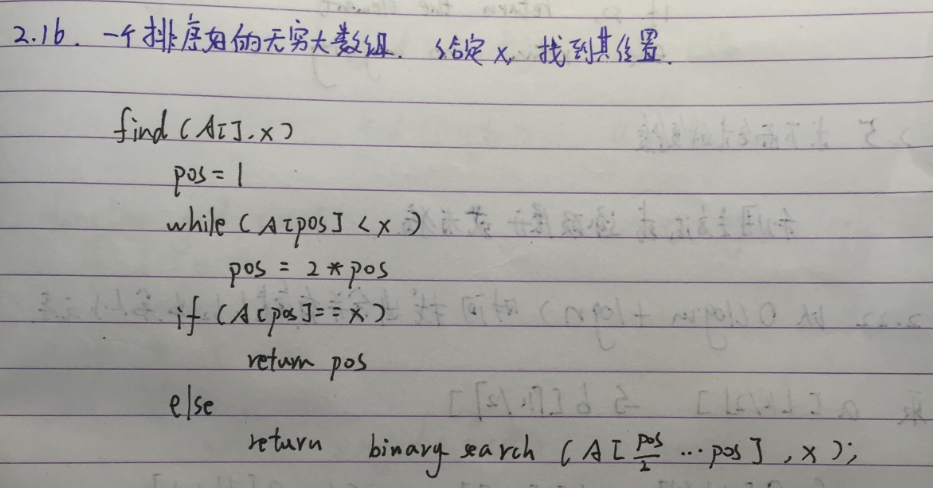 2.16. 一个排序好的无穷大数组. 给定 x, 找到其位置.
find (A[], x)
pos = 1
while (A[pos] < x)
pos = 2 * pos
if (A[pos] == x)
return pos
else
return binary search (A[pos/2 ... pos], x);